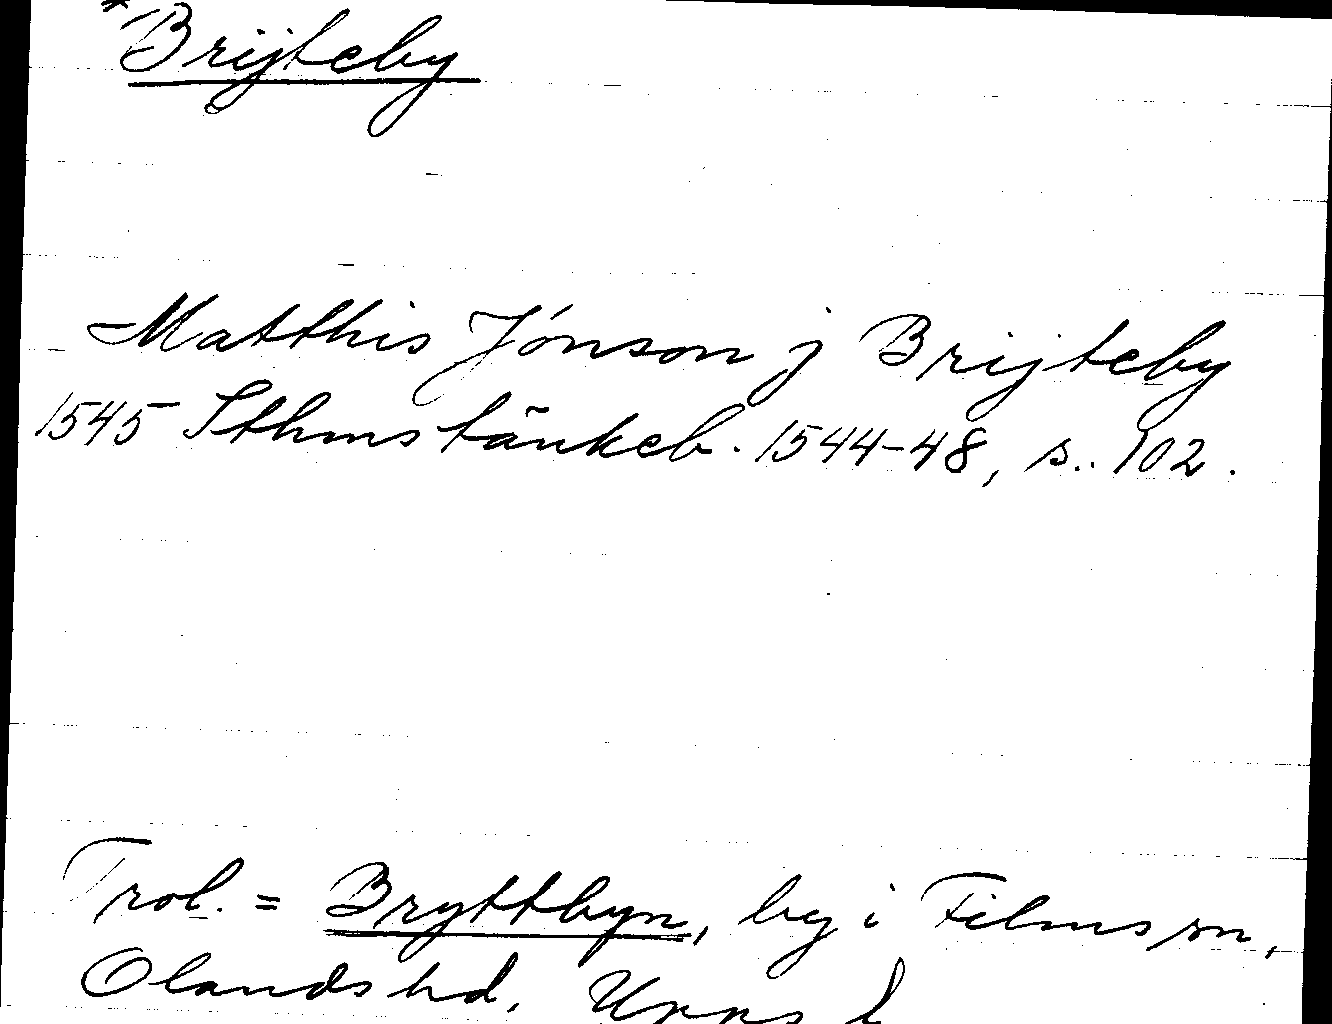 *Brijteby
Matthis Jónson j Brijteby
1545 Sthms tänkeb. 1544-48, s. 102.
Trol. = Bryttbyn, by i Films sn,
Olands hd, Upps l